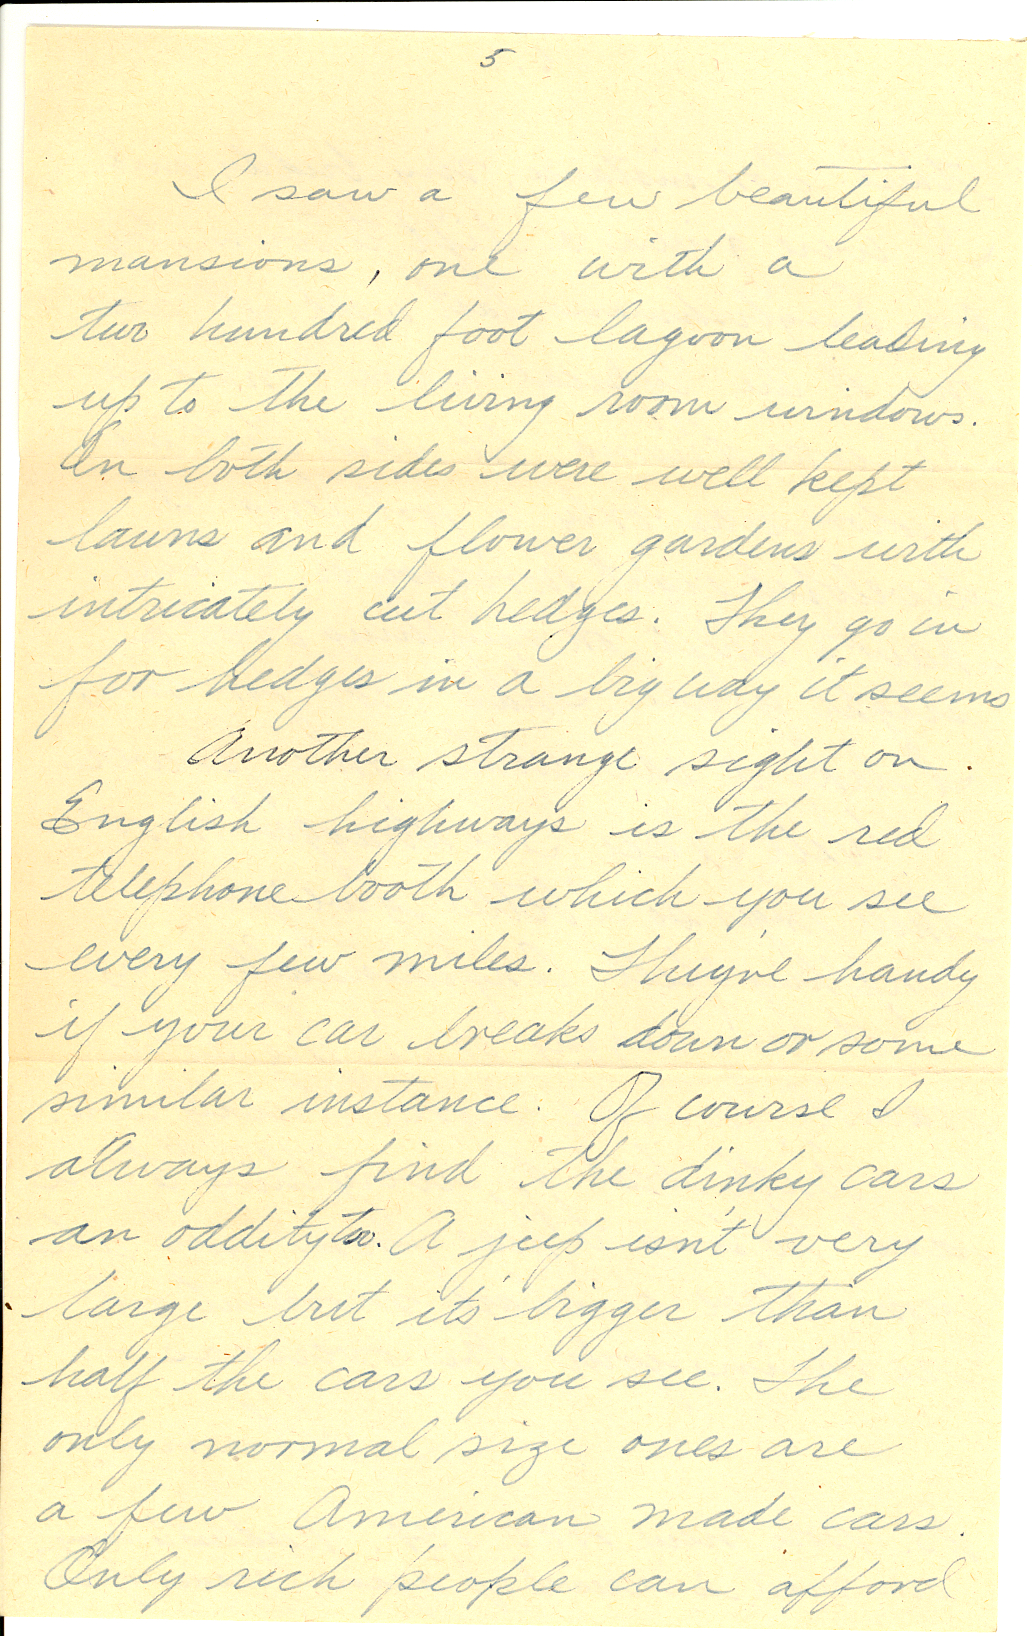 5
I saw a few beautiful
mansions, one with a
two hundred foot lagoon leading
up to the living room windows.
On both sides were well kept
lawns and flower gardens with
intricately cut hedges. They go in
for hedges in a big way it seems
Another strange sight on
English highways is the red
telephone booth which you see
every few miles. They're handy
if your car breaks down or some
similar instance. Of course I
always find the dinky cars
an oddity too. A jeep isn't very
large but it's bigger than
half the cars you see. The
only normal size ones are
a few American made cars.
Only rich people can afford